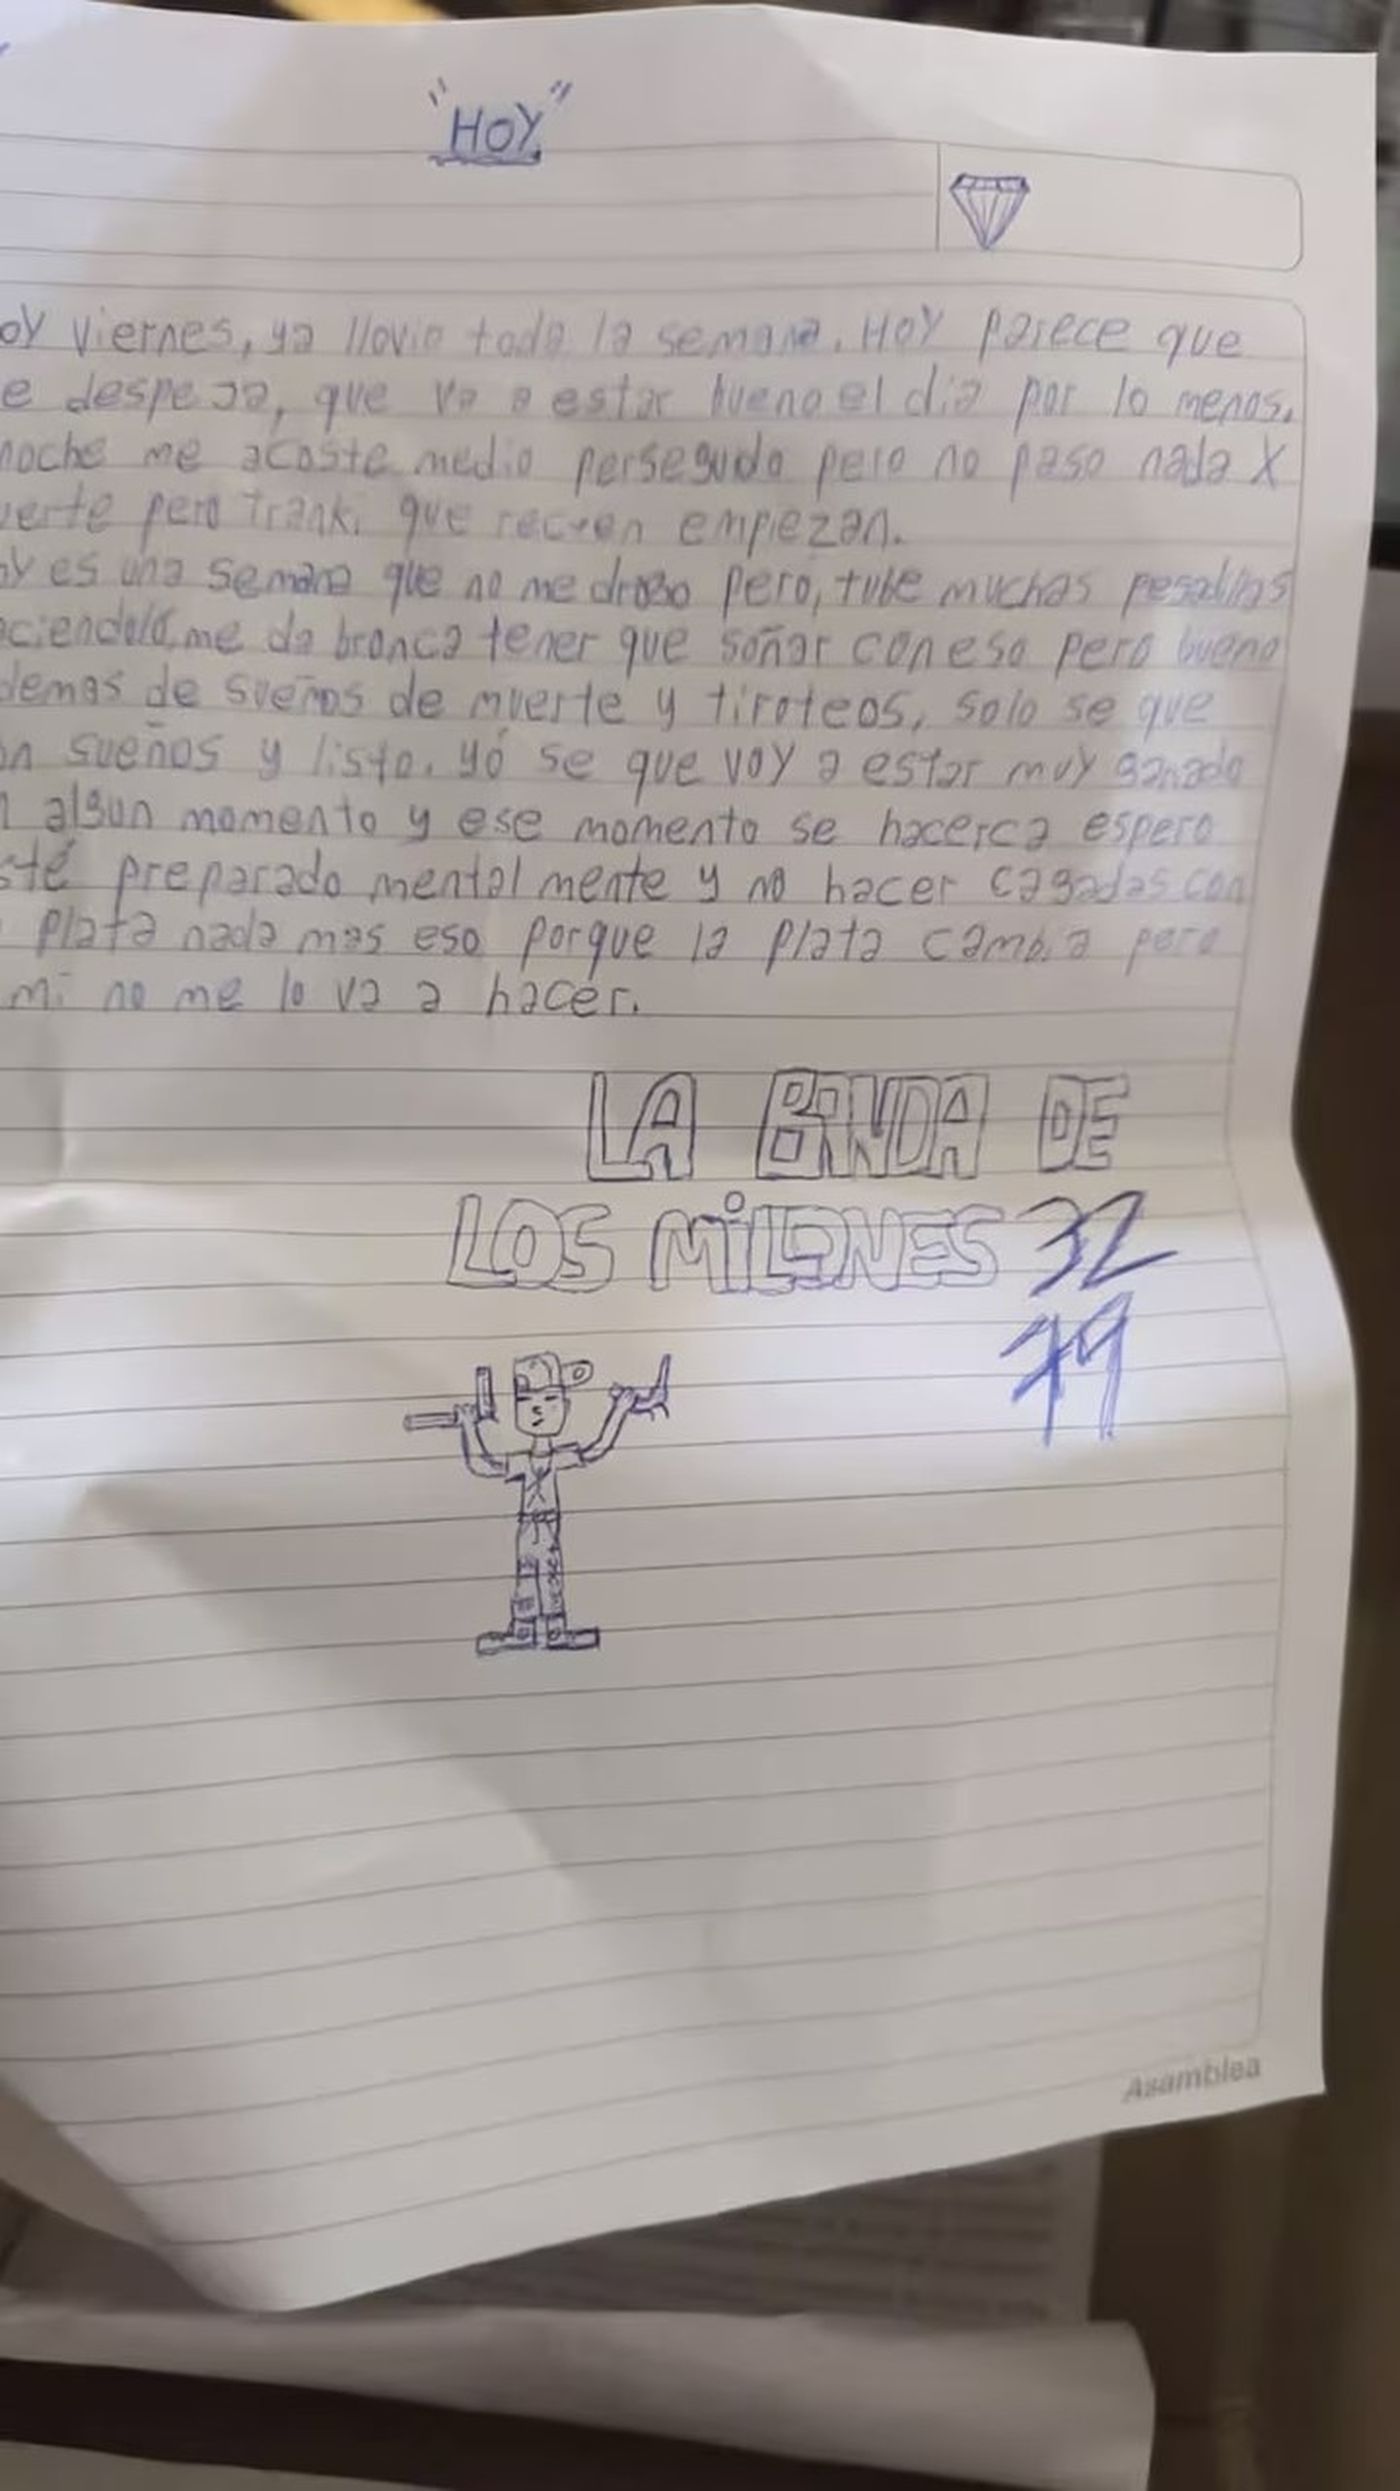 "HOY"
oy viernes, ya llovio toda la semana. Hoy parece que
e despeja, que va a estar bueno el dia por lo menos.
noche me acoste medio perseguido pero no paso nada X
uerte pero tranki que recien empiezan.
oy es una semana que no me drogo pero, tube muchas pesadillas
aciendolo, me da bronca tener que soñar con eso pero bueno
demas de sueños de muerte y tiroteos, solo se que
on sueños y listo. yo se que voy a estar muy ganado
n algun momento y ese momento se hacerca espero
sté preparado mentalmente y no hacer cagadas con
plata nada mas eso porque la plata cambia pero
mi no me lo va a hacer.
LA BANDA DE
LOS MiLONES 32
79
Asamblea